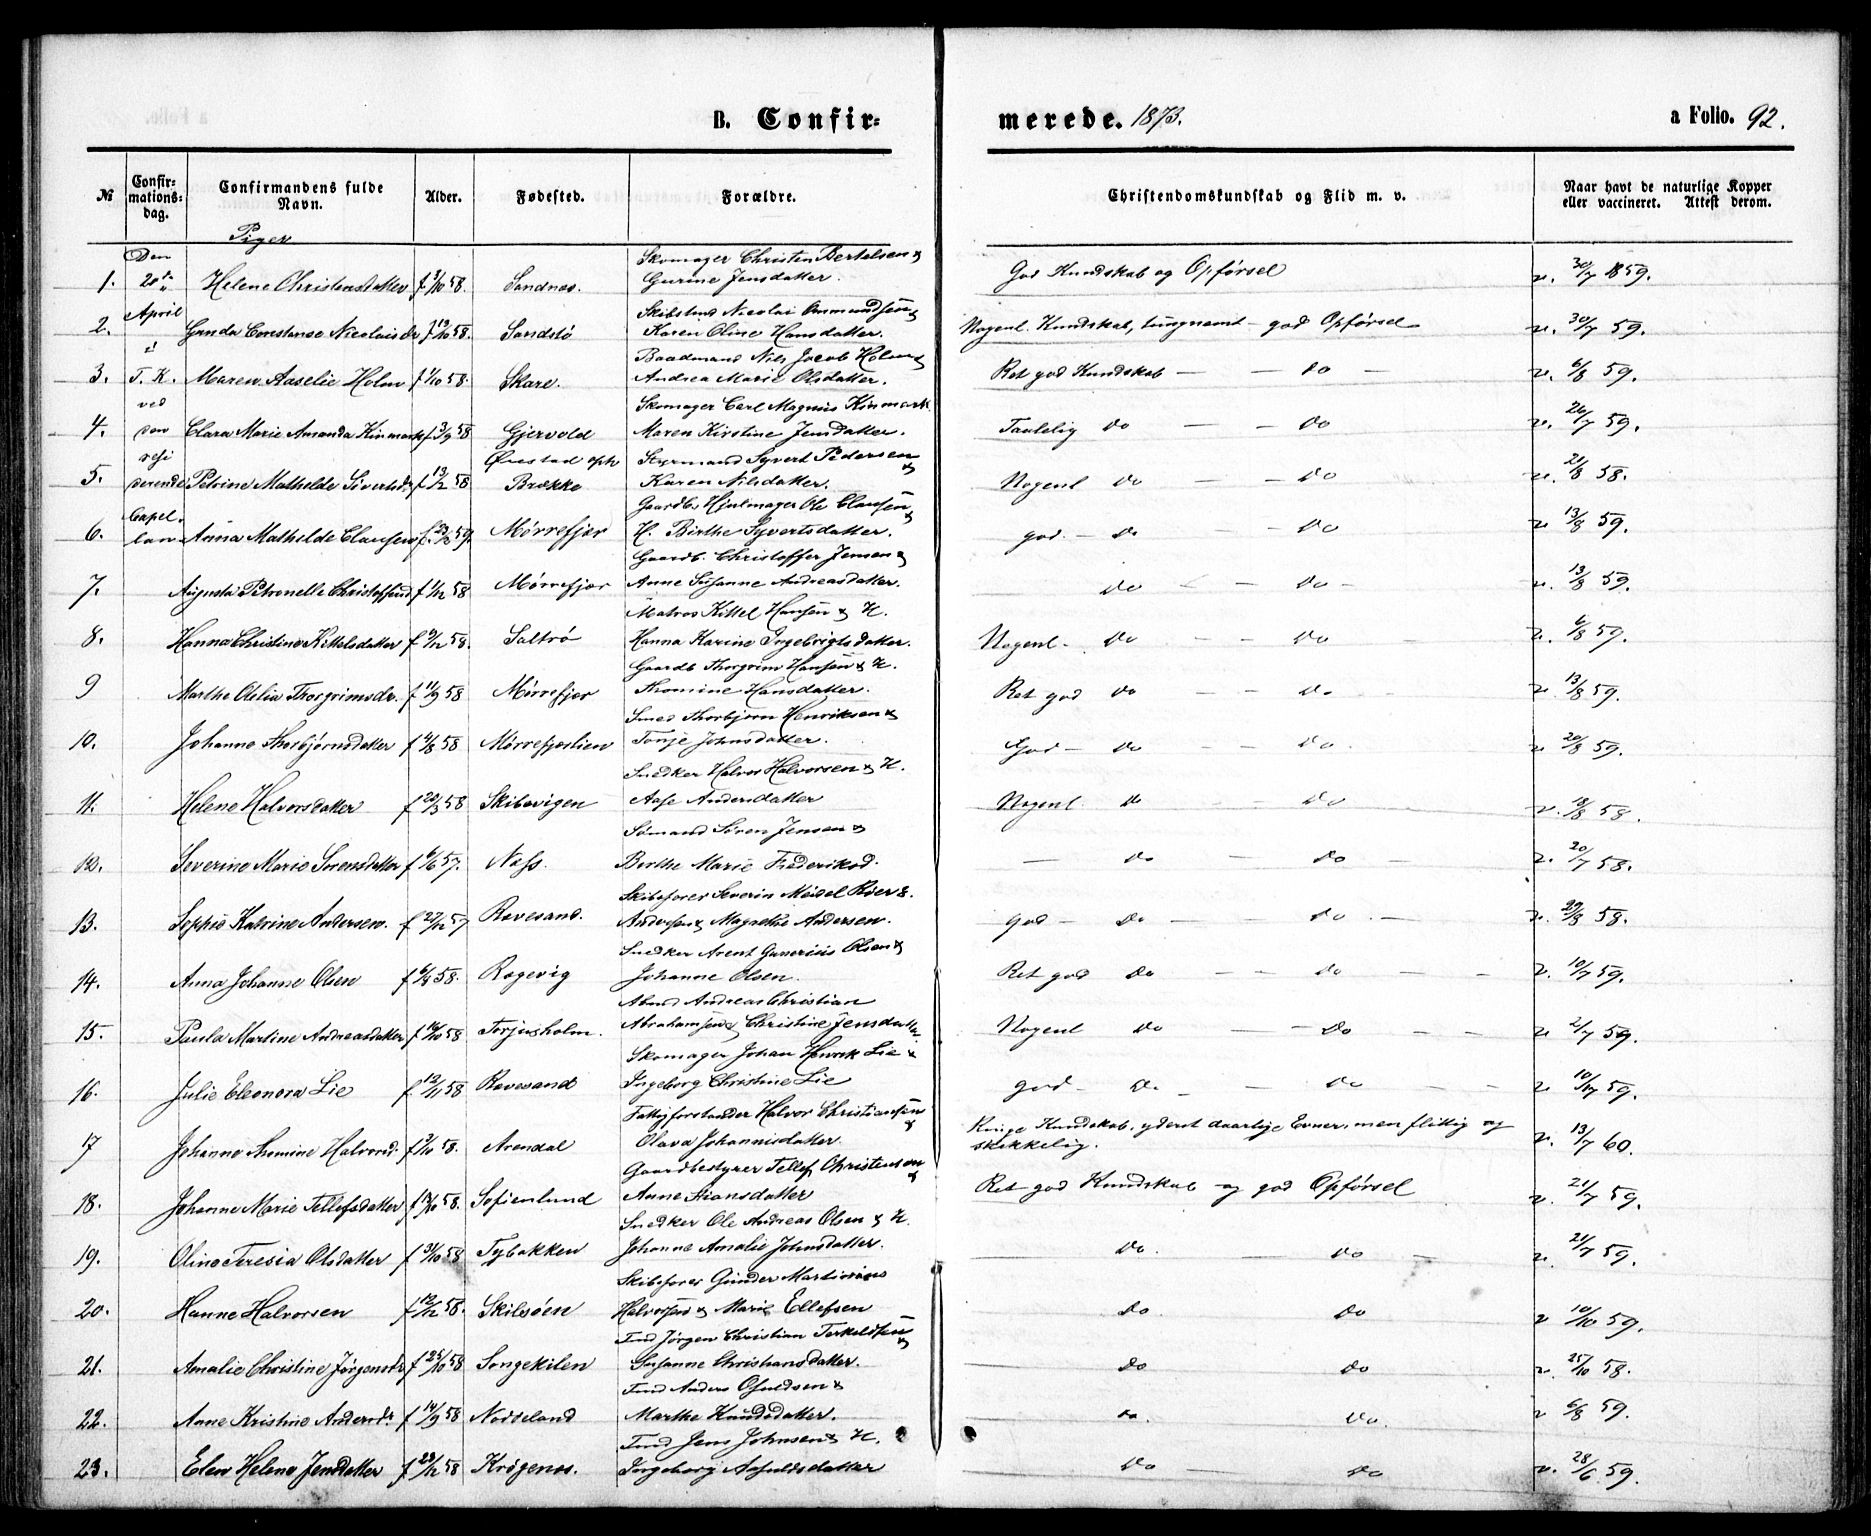 B. Confir-
merede. 1873.
a Folio. 92.
№
Confir-
mations-
dag.
Confirmandens fulde
Navn.
Alder.
Fødested.
Forældre.
Christendomskundskab og Flid m. v.
Naar havt de naturlige Kopper
eller vaccineret. Attest derom.
Piger
Den
20de
April
i
T. K.
ved
den
resi
derende
Capel.
lan
Skomager Christen Bertelsen &
1. Helene Christensdatter f 3/10 58. Sandnæs. Gurine Jensdatter. God Kundskab og Opførsel v. 30/7 1859.
Skibstmd Nicolai Osmundsen &
2. Gunda Constanse Nicolaisdr f 19/10 58. Sandstø Karen Oline Hansdatter. Nogenl. Kundskab, tungnemt - god Opførsel v. 30/7 59.
Baadmand Nils Jacob Holm &
3. Maren Aaselie Holm f 1/10 58. Skare. Andrea Marie Olsdatter. Ret god Kundskab — — do — v. 6/8 59.
Skomager Carl Magnus Kinmark
4. Clara Marie Amanda Kinmark f 3/9 58 Gjervold Maren Kirstine Jensdatter. Taalelig do — — do v. 26/7 59.
Øiestad oph Styrmand Syvert Pedersen &
5. Petrine Mathilde Sivertsdr f 13/12 58 Brække Karen Nilsdatter. Nogenl do — — do v. 21/8 58.
Gaardbr Hjulmager Ole Clausen &
6. Anna Mathilde Clausen f. 23/2 59. Mørrefjær H. Birthe Syvertsdatter. god — do — do v. 13/8 59.
Gaardb. Christoffer Jensen &
7. Augusta Petronelle Christoffersd f 1/12 58 Mørrefjær Anne Susanne Andreasdatter. do — — do — v. 13/8 59.
Matros Kittel Hansen & H.
8. Hanna Christine Kittelsdatter f 9/12 58. Saltrø Hanna Karine Ingebrigtsdatter. Nogenl. do — — do v. 6/8 59.
Gaardb Thorgrim Hansen & H.
9 Marthe Otilia Thorgrimsdr. f 11/9 58 Mørrefjær Thomine Hansdatter. Ret god do — — do v. 13/8 59.
Smed Thorbjørn Henriksen &
10. Johanne Thorbjørnsdatter f 4/8 58 Mørrefjærlien Tonje Johnsdatter. God — do — do. v. 20/8 59.
Snedker Halvor Halvorsen & H.
11. Helene Halvorsdatter f 20/3 58 Skibsvigen Aase Andersdatter Nogenl do — do v. 18/8 58.
Sømand Søren Jensen &
12. Severine Marie Sørensdatter f 6/6 57. Næss. Berthe Marie Frederiksd. — do — do — v. 20/7 58.
Skibsfører Severin Meidel Røer &.
13. Sophie Katrine Andersen. f 27/12 57 Revesand. Andersen & Magrethe Andersen. god — do — do — v. 29/8 58.
Snedker Arent Gunerius Olsen &
14. Anna Johanne Olsen f 6/4 58. Rægevig Johanne Olsen. Ret god do — — do — — v. 10/7 59.
Abmd Andreas Christian
15. Paula Martine Andreasdatter f 16/10 58 Torjusholm. Abrahamsen & Christine Jensdatter. Nogenl do — — do — v 2/7 59.
Skomager Johan Henrik Lie &
16. Julie Eleonora Lie f 12/11 58 Revesand Ingeborg Christine Lie god — do. — — do — v 10/7 59.
Fattigforstander Halvor Christiansen &
17 Johanne Thomine Halvorsd. f 9/10 58. Arendal Olava Johannisdatter. Ringe Kundskab, yderst daarlige Evner, men flittig og
skikkelig. v. 13/7 60.
Gaardbestyrer Tellef Christensen &
18. Johanne Marie Tellefsdatter f 19/10 58. Sofienlund Anne Stiansdatter Ret god Kundskab — og god Opførsel v. 21/7 59.
Snedker Ole Andreas Olsen & H.
19. Oline Teresia Olsdatter f 31/10 58 Tybakken Johanne Amalie Johnsdatter. do. — do — v. 21/7 59.
Skibsfører Gunder Martinius
20. Hanne Halvorsen f 12/12 58. Skilsøen Halvorsen & Marie Ellefsen do. do v 10/10 59.
Tmd Jørgen Christian Terkeldsen &
21. Amalie Christine Jørgensdr f 25/10 58 Songekilen Susanne Christiansdatter. do do v. 25/10 58.
Tmd Anders Osuldsen &
22. Anne Kristine Andersdr f 14/9 58 Nødseland Marthe Knudsdatter. do. do. v 6/8 59.
Tmd Jens Johnsen & H.
23. Elen Helene Jensdatter f 23/12 58 Krøgenæs. Ingeborg Aasuldsdatter do do v. 28/6 59.